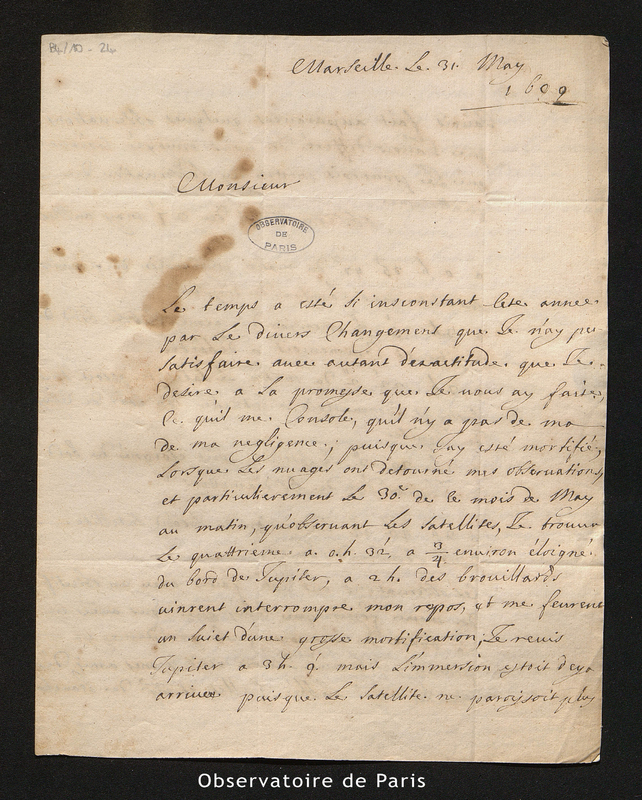 B4/10 - 21
Marseille. Le. 31. May
Monsieur
OBSERVATOIRE
DE
PARIS
Le temps a esté si insconstant cete année
par Le divers Changement que Je n'ay pu
satisfaire avec autant d'exactitude que Je
desire a La promesse que Je vous ay faite,
Ce. qu'il me Console, qu'il n'y a pas de ma
de ma negligence; puisque J'ay esté mortifié,
Lorsque Les nuages ont detourné mes observations,
et particulierement Le 30e de ce mois de May
au matin, qu'observant Les satellites, Je trouvai
Le quattrieme a 0.h. 32', a 3/4 environ éloigné
du bord de Jupiter, a 2h. des brouillards
vinrent interrompre mon repos, et me feurent
un suiet d'une grosse mortification; Je revis
Jupiter a 3h. 9'. mais L'immersion estoit deja
arrivée puisque Le satellite ne paroissoit plus
Observatoire de Paris